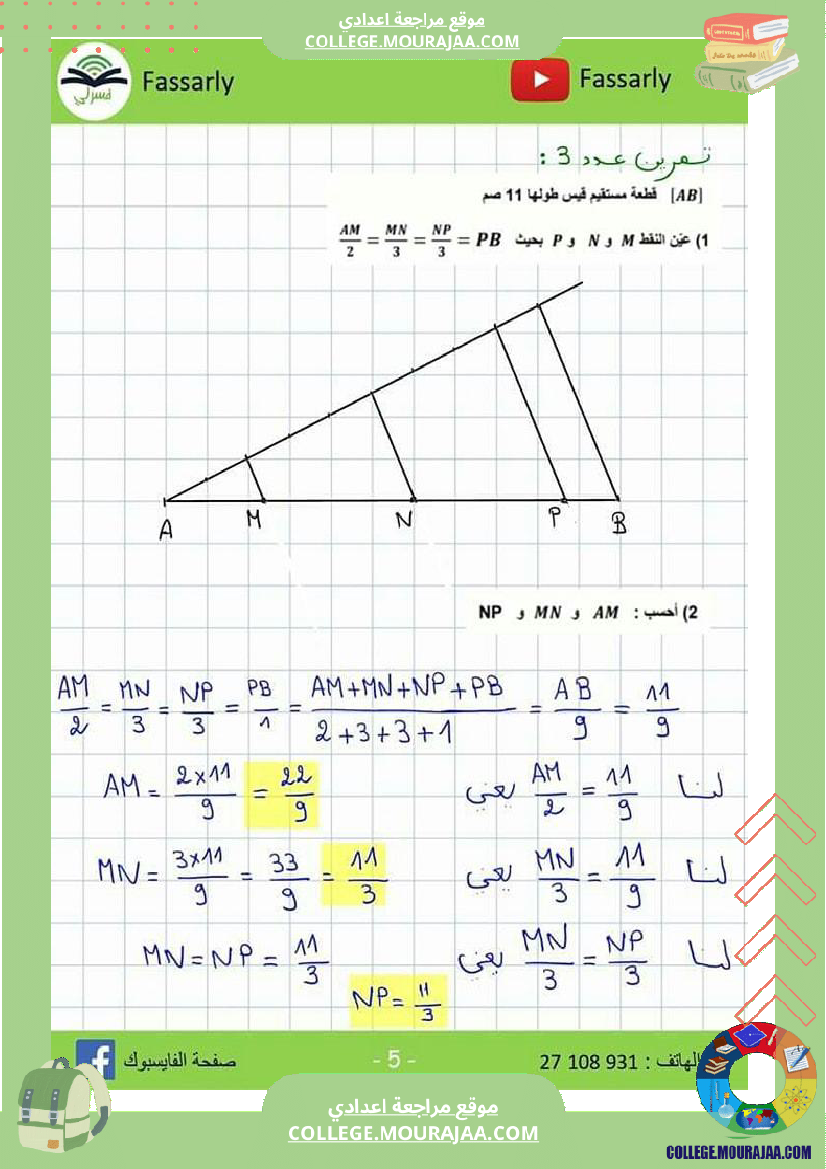 موقع مراجعة اعدادي
COLLEGE.MOURAJAA.COM
فسرلي
Fassarly
Fassarly
تمرين عدد 3 :
[AB] قطعة مستقيم قيس طولها 11 صم
1) عيّن النقط M و N و P بحيث AM/2 = MN/3 = NP/3 = PB
A M N P B
2) أحسب : AM و MN و NP
AM/2 = MN/3 = NP/3 = PB/1 = (AM+MN+NP+PB)/(2+3+3+1) = AB/9 = 11/9
لنا AM/2 = 11/9 يعني AM = 2×11/9 = 22/9
لنا MN/3 = 11/9 يعني MN = 3×11/9 = 33/9 = 11/3
لنا MN/3 = NP/3 يعني MN = NP = 11/3
NP = 11/3
صفحة الفايسبوك
- 5 -
الهاتف : 27 108 931
موقع مراجعة اعدادي
COLLEGE.MOURAJAA.COM
COLLEGE.MOURAJAA.COM